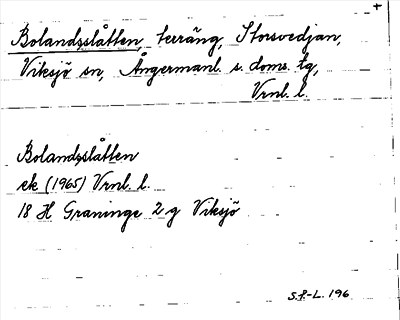 +
Bolandsslåtten, terräng, Storsvedjan,
Viksjö sn, Ångermanl. s. doms. tg,
Vrnl. l.
Bolandsslåtten
ek (1965) Vrnl. l.
18 H Graninge 2 g Viksjö
S.f.-L. 196